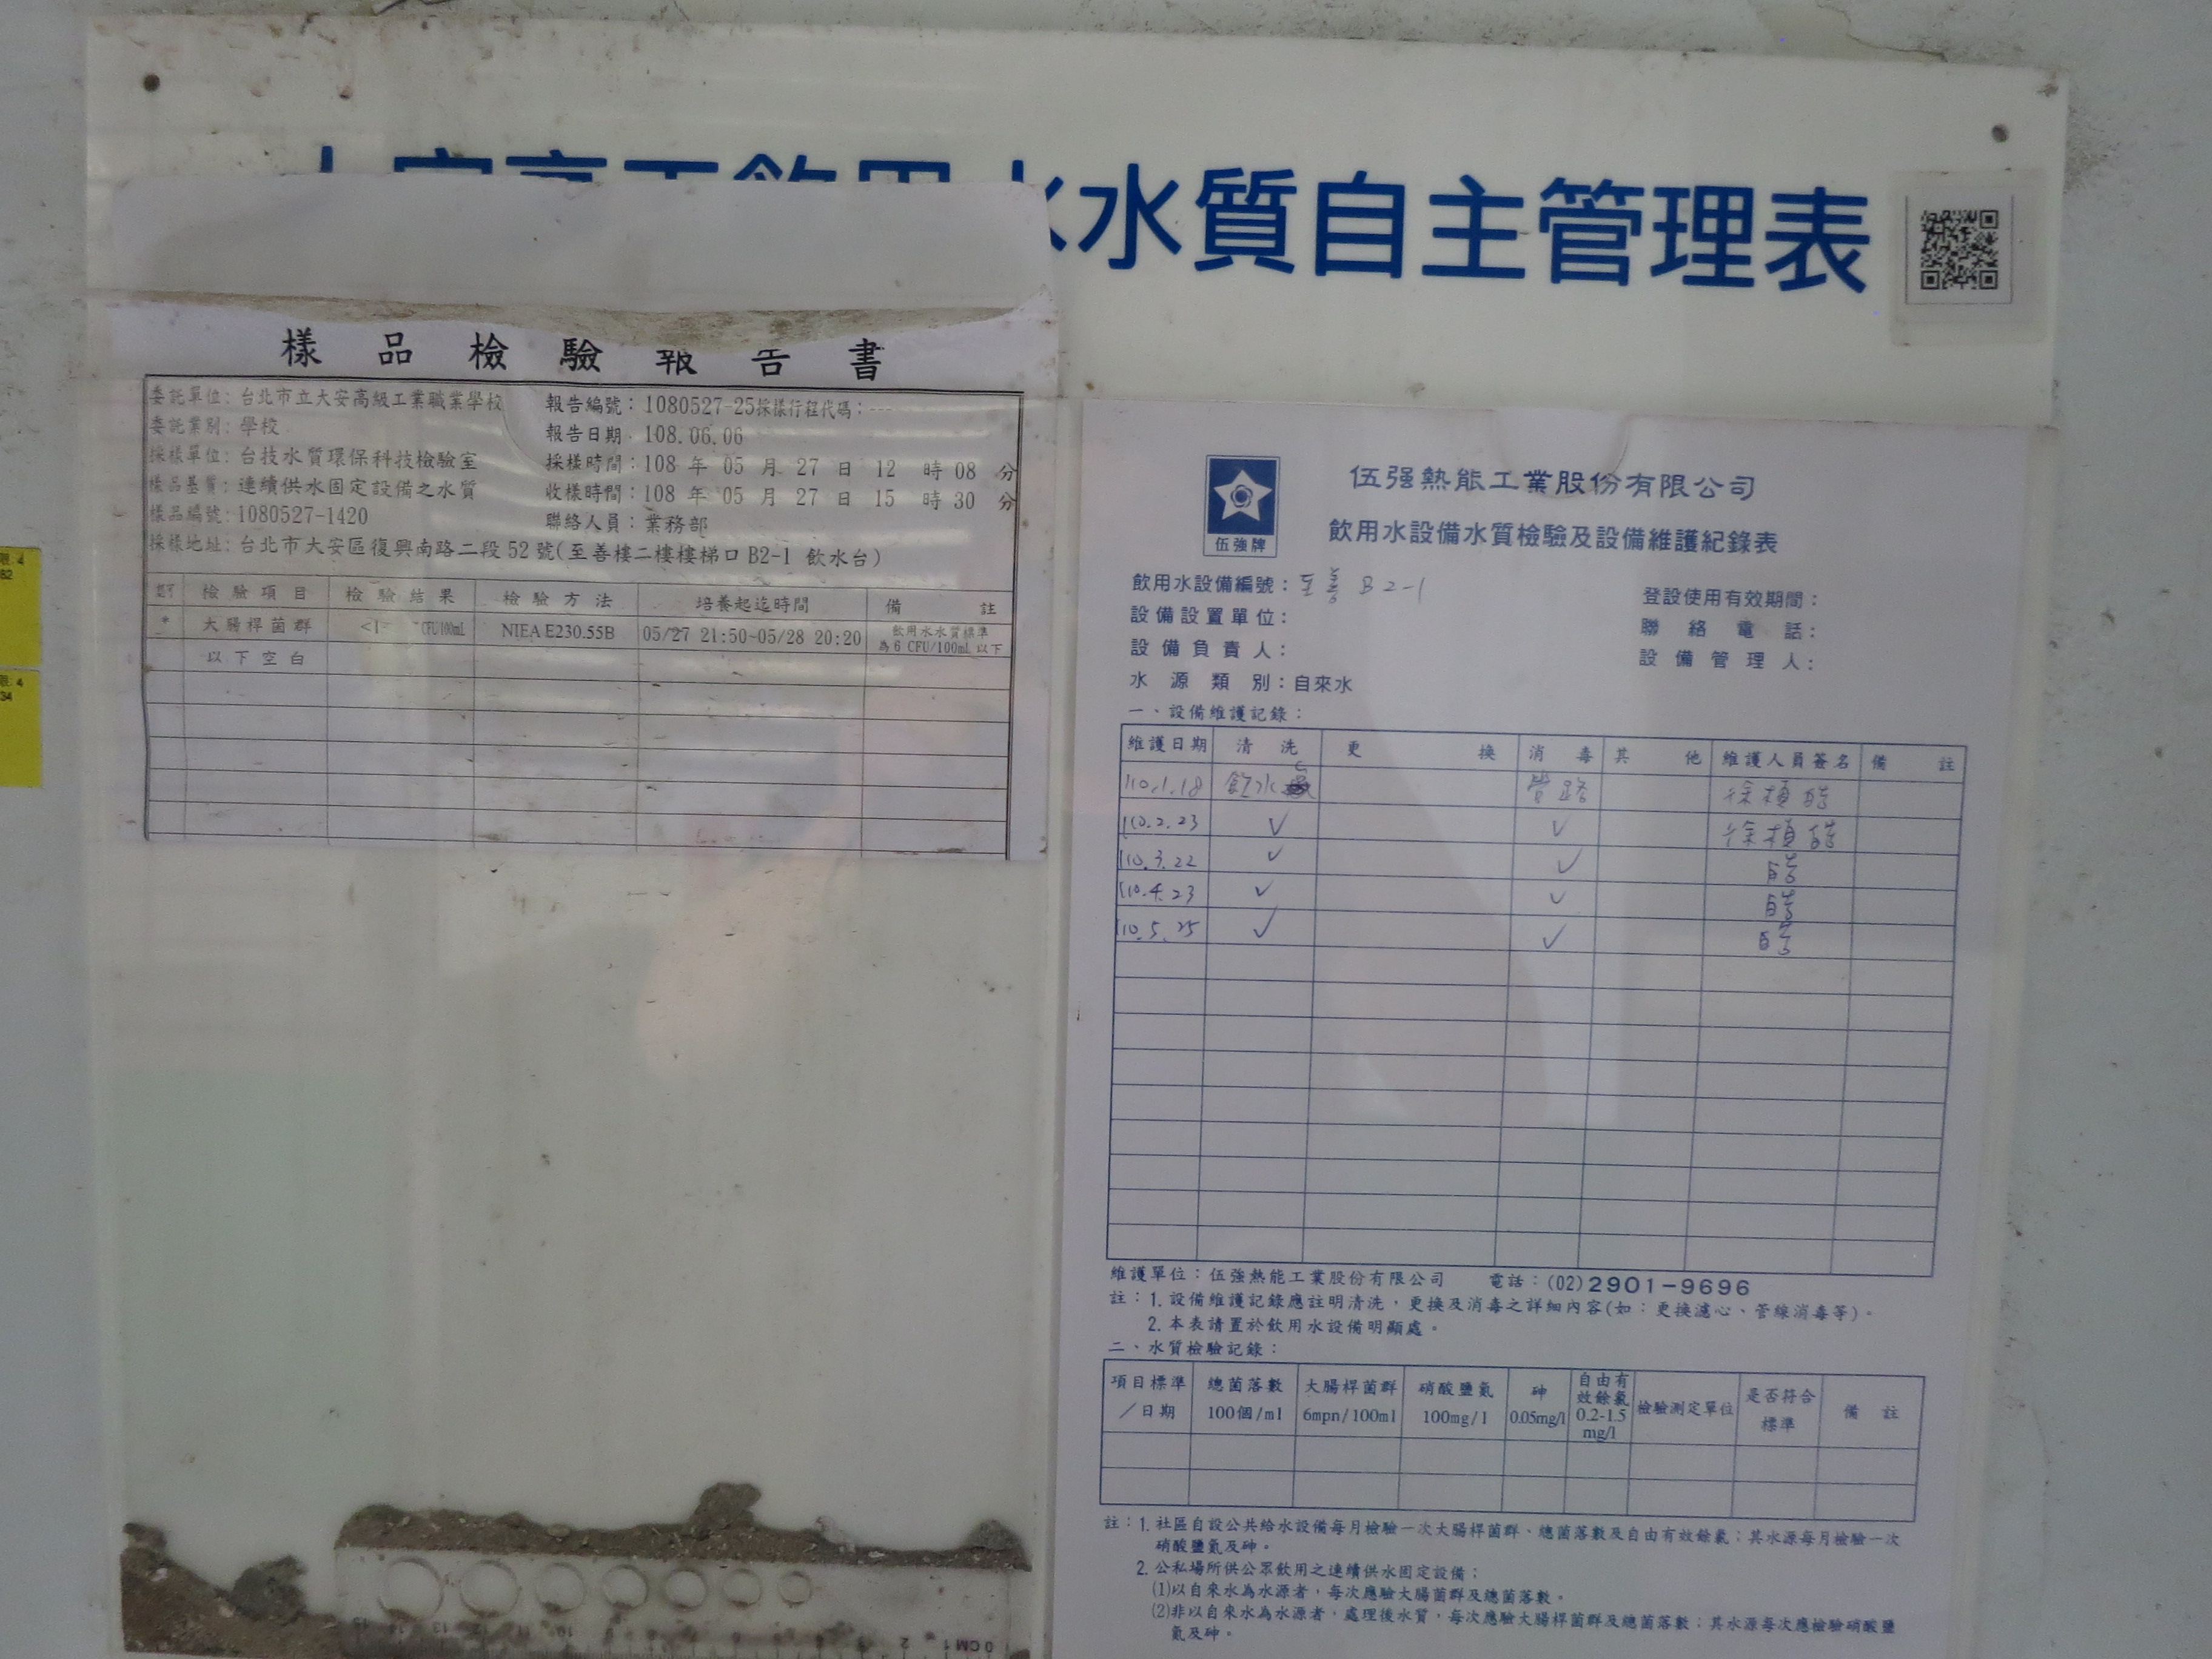 水質自主管理表
樣品檢驗報告書
委託單位：台北市立大安高級工業職業學校
報告編號：1080527-25採樣行程代碼：---
委託業別：學校
報告日期 108.06.06
採樣單位：台技水質環保科技檢驗室
採樣時間：108 年 05 月 27 日 12 時 08 分
樣品基質：連續供水固定設備之水質
收樣時間：108 年 05 月 27 日 15 時 30 分
樣品編號：1080527-1420
聯絡人員：業務部
採樣地址：台北市大安區復興南路二段52號(至善樓二樓樓梯口B2-1 飲水台)
檢驗項目 檢驗結果 檢驗方法 培養起迄時間 備註
* 大腸桿菌群 <1 CFU/100mL NIEA E230.55B 05/27 21:50~05/28 20:20 飲用水水質標準
為6 CFU/100mL 以下
以下空白
伍強牌
伍强熱能工業股份有限公司
飲用水設備水質檢驗及設備維護紀錄表
飲用水設備編號：至善 B2-1
登設使用有效期間：
設備設置單位：
聯絡電話：
設備負責人：
設備管理人：
水源類別：自來水
一、設備維護記錄：
維護日期 清洗 更換 消毒 其他 維護人員簽名 備註
110.1.18 飲水 管路
110.2.23 ✓ ✓
110.3.22 ✓ ✓
110.4.23 ✓ ✓
110.5.25 ✓ ✓
維護單位：伍強熱能工業股份有限公司 電話：(02)2901-9696
註：1. 設備維護記錄應註明清洗，更換及消毒之詳細內容(如：更換濾心、管線消毒等)。
2. 本表請置於飲用水設備明顯處。
二、水質檢驗記錄：
項目標準／日期 總菌落數 100個/ml 大腸桿菌群 6mpn/100ml 硝酸鹽氮 100mg/l 砷 0.05mg/l 自由有效餘氯 0.2-1.5 mg/l 檢驗測定單位 是否符合標準 備註
註：1. 社區自設公共給水設備每月檢驗一次大腸桿菌群、總菌落數及自由有效餘氯；其水源每月檢驗一次
硝酸鹽氮及砷。
2. 公私場所供公眾飲用之連續供水固定設備：
(1)以自來水為水源者，每次應驗大腸菌群及總菌落數。
(2)非以自來水為水源者，處理後水質，每次應驗大腸桿菌群及總菌落數；其水源每次應檢驗硝酸鹽
氮及砷。
0 CM 1